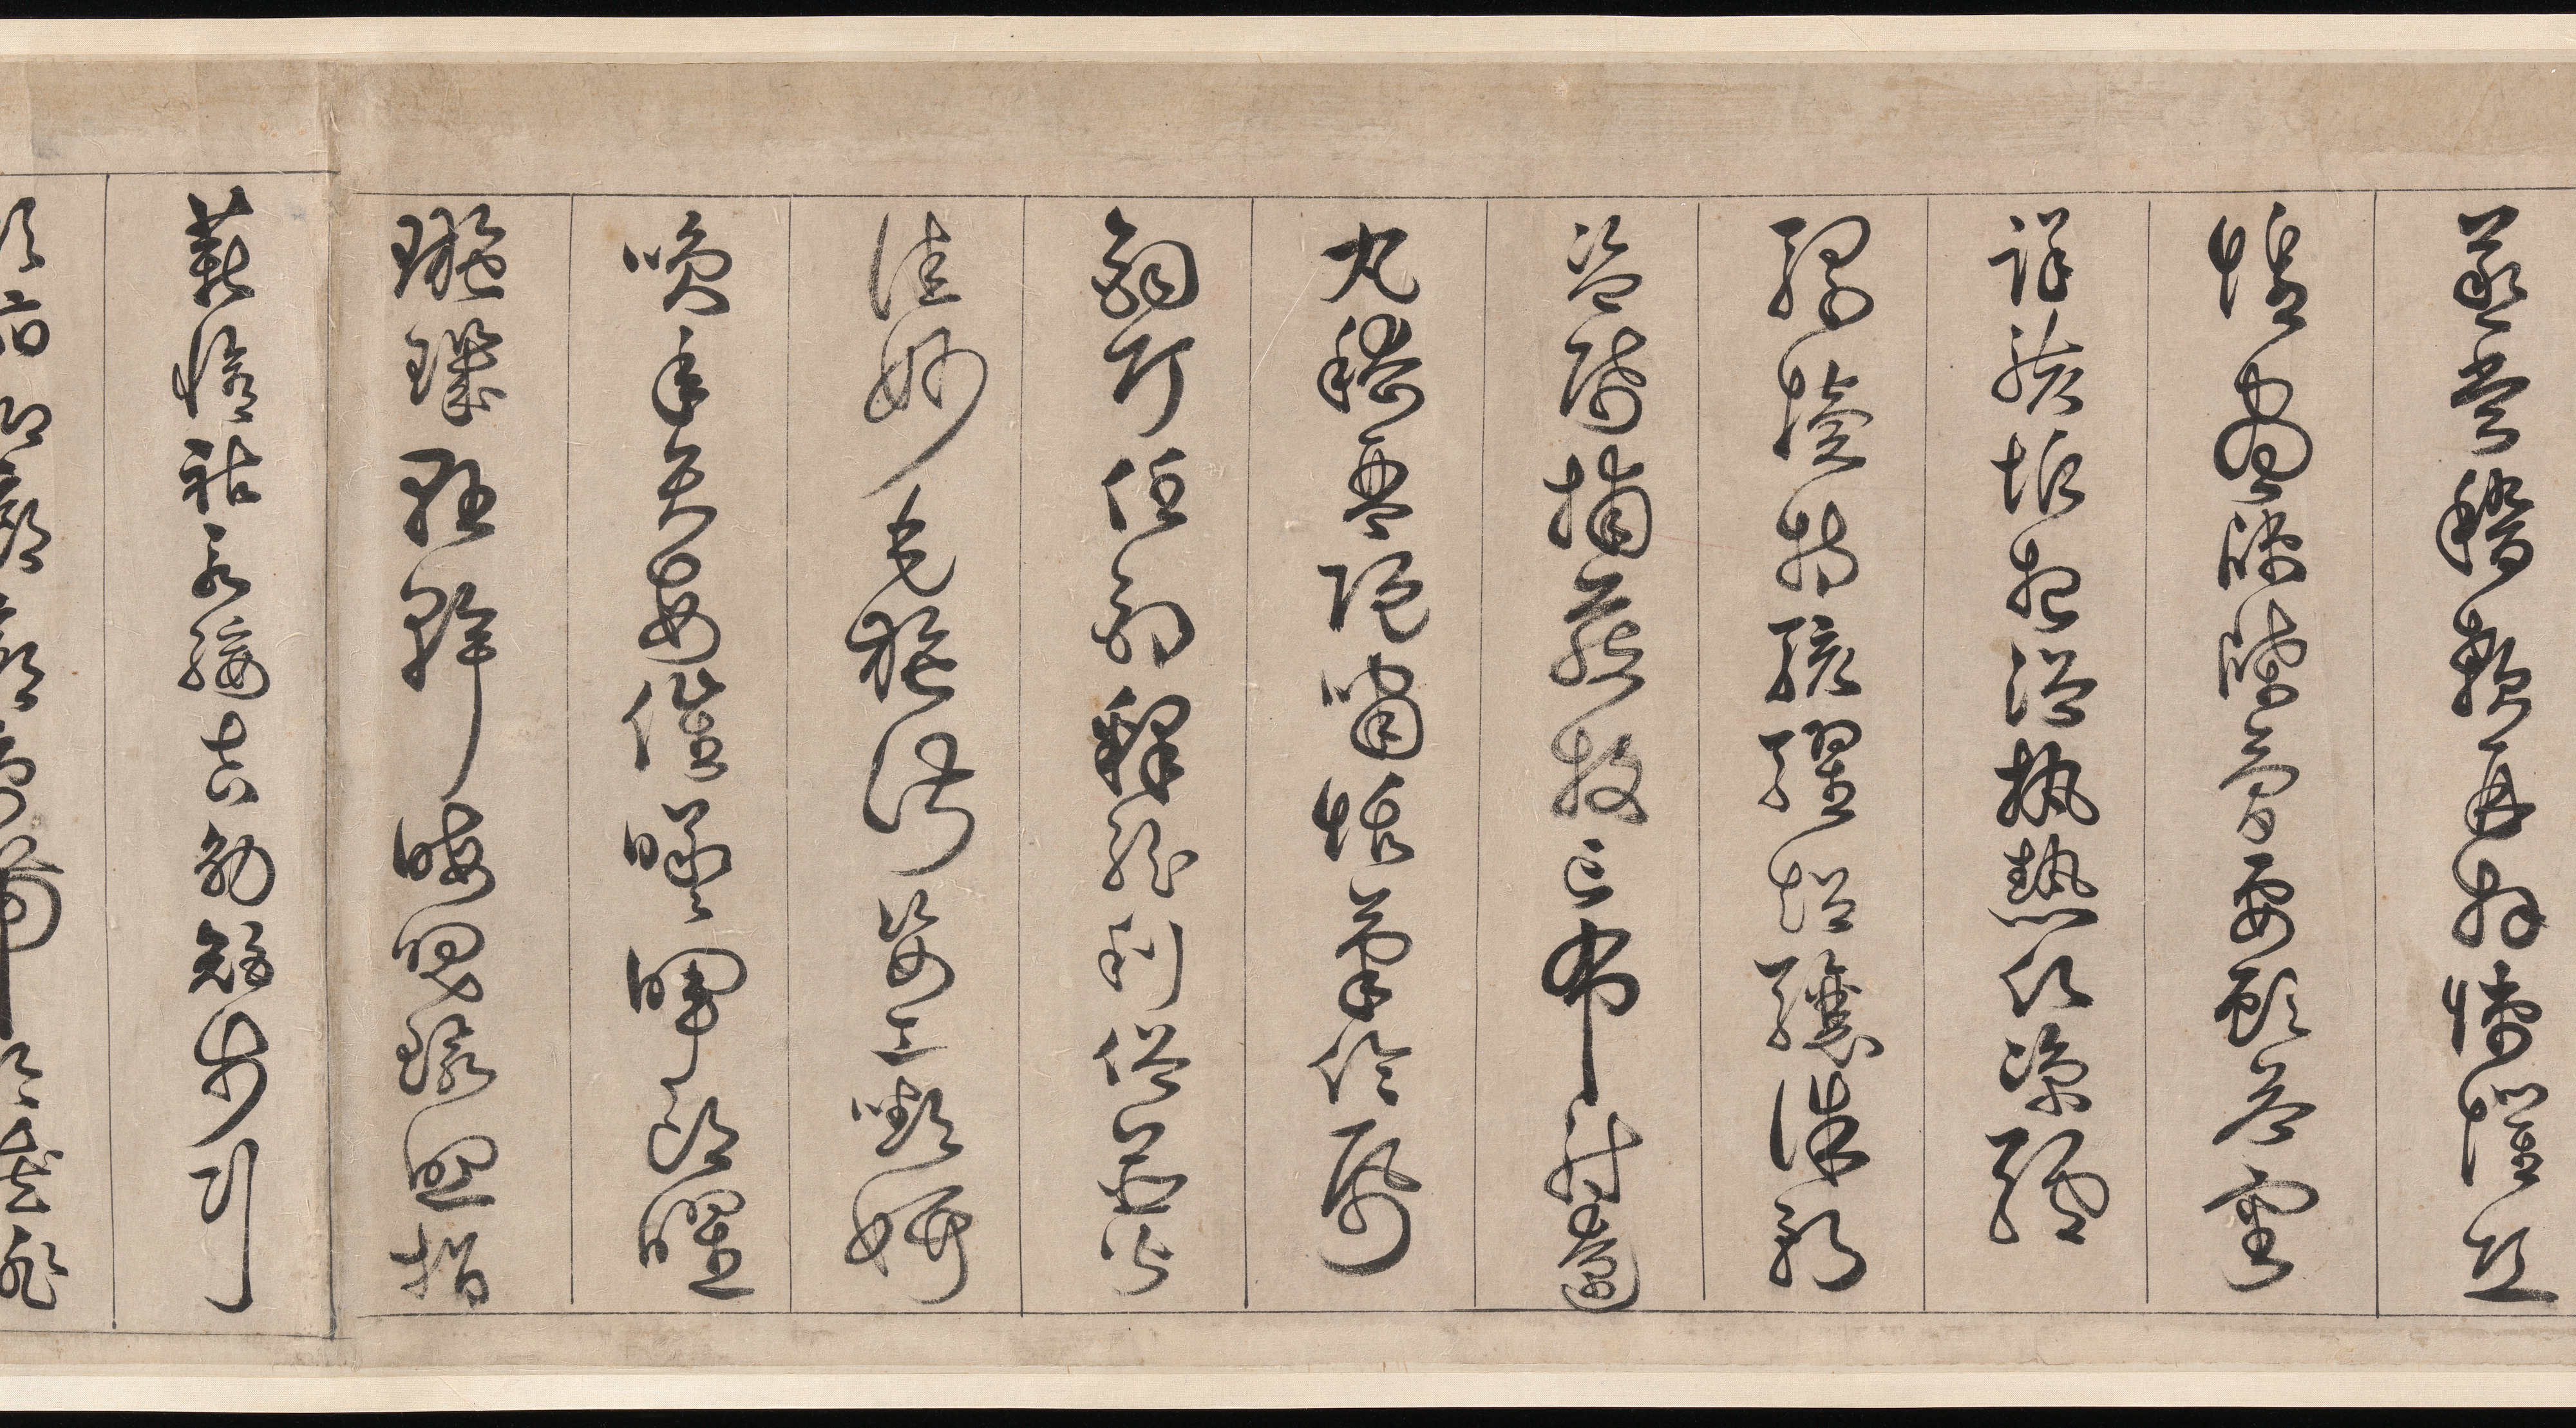 烝嘗稽顙再拜悚懼恐
惶牋牒簡要顧答審
詳骸垢想浴執熱願涼驢
騾犢特駭躍超驤誅斬
賊盜捕獲叛亡布射遼
丸嵇琴阮嘯恬筆倫紙
鈞巧任釣釋紛利俗並皆
佳妙毛施淑姿工顰妍
笑年矢每催曦暉朗曜
璇璣懸斡晦魄環照指
薪修祜永綏吉劭矩步引
領俯仰廊廟